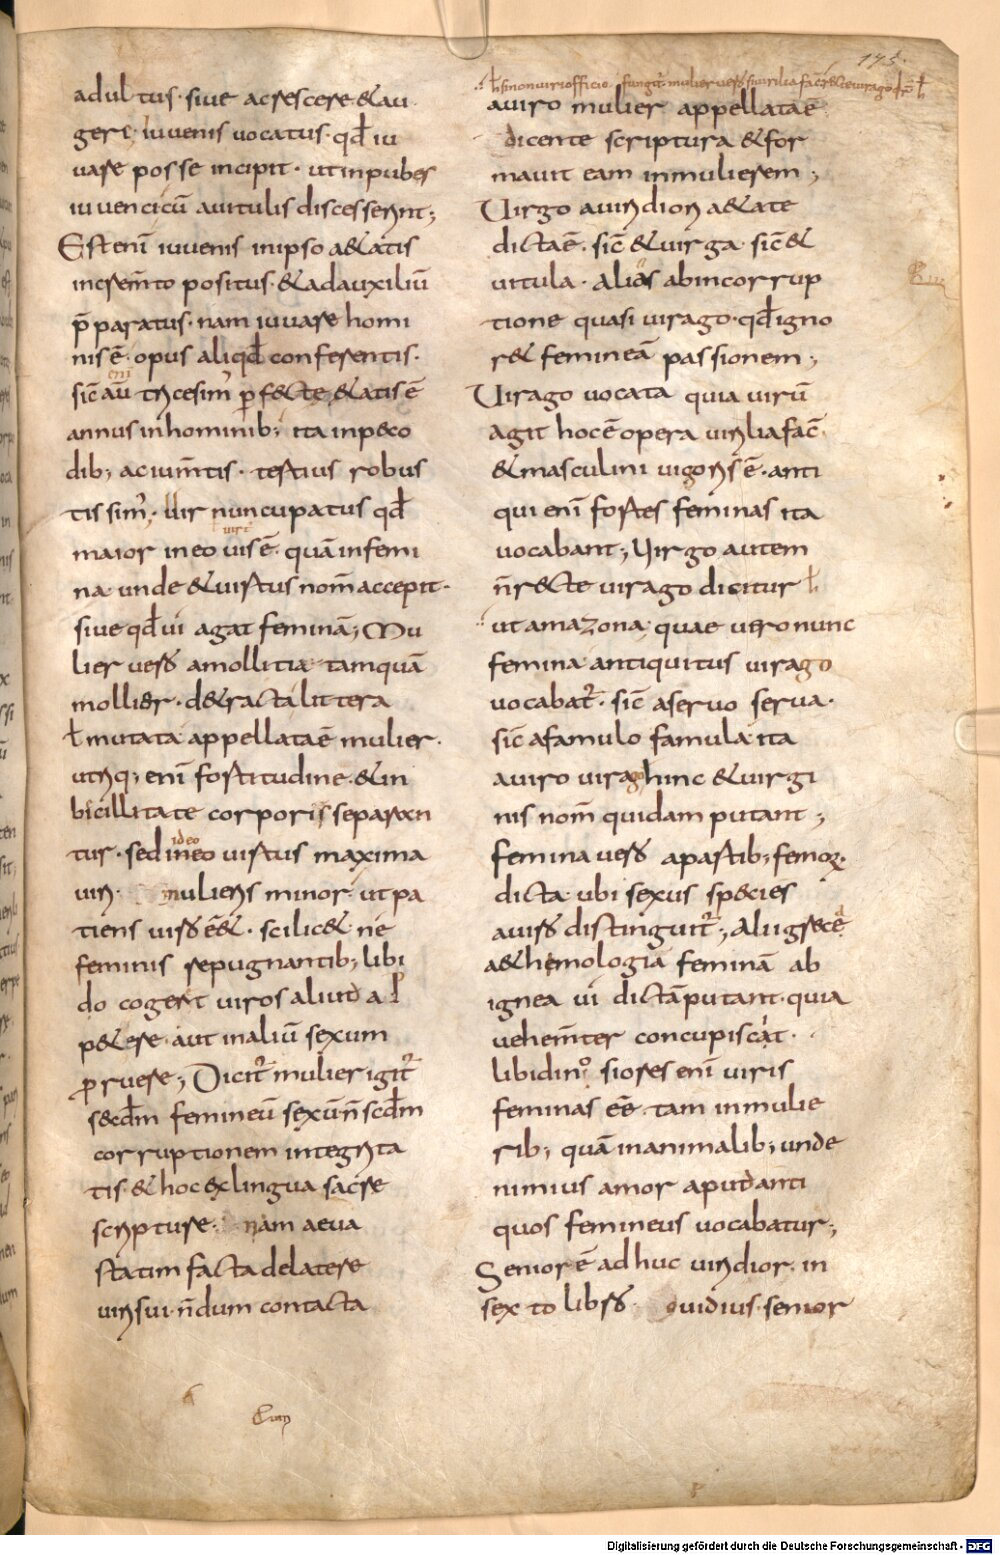 173.
adultus· siue acrescere & au
gere· iuuenis uocatus· qđ iu
uare posse incipit· ut in pubes
iuuencicū auitulis discesserint;
Est enī iuuenis in ipso a&atis
increm̄to positus· & ad auxiliū
p̄paratus· nam iuuare homi
nis ē· opus aliqđ conferentis·
eni
sic̄ aū tricesim' perf&te &atis ē
annus in hominib; ita in p&co
dib; ac ium̄tis· tertius robus
tissim'· Uir nuncupatus qđ
maior in eo uis ē· quā in femi
na· unde & uirtus nom̄ accepit·
siue qđ ui agat feminā; Mu
lier uero a mollitia· tamquā
mollier· d&racta littera
ł mutata· appellata ē mulier·
utriq; enī fortitudine & in
bicillitate corporis separan
ideo
tur· sed in eo uirtus maxima
uiri· mulieris minor· ut pa
tiens uiro e& · scilic& ne
feminis repugnantib; libi
do coger& uiros aliud a
p&ere· aut in aliū sexum
proruere; Dicit̄ mulier igit̄
s&cdm̄ femineū sexū n̄ scdm̄
corruptionem integrita
tis· & hoc ex lingua sacre
scripture· nam aeua
statim facta de latere
uiri sui· n̄dum contacta
auiro mulier appellata ē
dicente scriptura & for
mauit eam in mulierem;
Uirgo a uiridiori a&ate
dicta ē· sic̄ & uirga· sic̄ &
uitula· Alias ab incorrup
tione quasi uirago· qđ igno
r& femineā passionem;
Uirago uocata quia uirū
agit hoc ē opera uirilia fac̄·
& masculini uigoris ē· anti
qui enī fortes feminas ita
uocabant; Uirgo autem
n̄ r&cte uirago dicitur
ut amazona· quae uero nunc
femina antiquitus uirago
uocabat̄· sic̄ a seruo serua·
sic̄ a famulo famula· ita
a uiro uirago hinc & uirgi
nis nom̄ quidam putant;
femina uero a partib; femorꝝ
dicta· ubi sexus species
a uiro distinguit̄; Alii grece
a&hemologiā feminā ab
ignea ui dictā putant· quia
uehem̄ter concupiscat·
libidino siores enī uiris
feminas e͞e· tam in mulie
rib; quā in animalib; unde
nimius amor aput anti
quos femineus uocabatur;
Senior ē adhuc uiridior· in
sexto libro· ouidius· senior
Digitalisierung gefördert durch die Deutsche Forschungsgemeinschaft · DFG